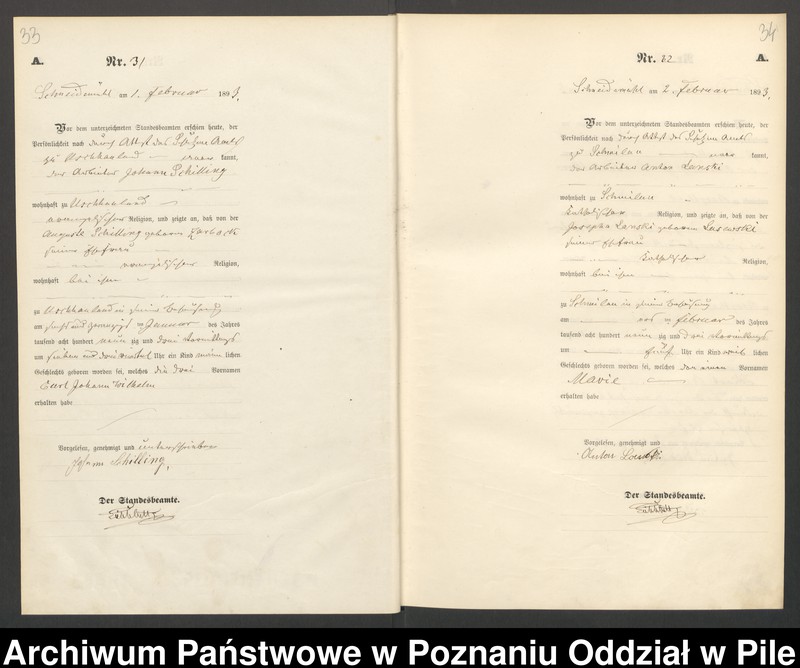 33
A.
Nr. 31
Schneidemühl am 1. Februar 1893.
Vor dem unterzeichneten Standesbeamten erschien heute, der
Persönlichkeit nach durch Attest des Schulzen Amts
zu Uschhauland kannt,
der Arbeiter Johann Schilling
wohnhaft zu Uschhauland
evangelischer Religion, und zeigte an, daß von der
Auguste Schilling geborene
seiner Ehefrau
evangelischer Religion,
wohnhaft bei ihm
zu Uschhauland in seiner Behausung
am sechs und zwanzigsten Januar des Jahres
tausend acht hundert neun zig und drei Vormittags
um sieben und drei viertel Uhr ein Kind männlichen
Geschlechts geboren worden sei, welches die drei Vornamen
Carl Johann Wilhelm
erhalten habe
Vorgelesen, genehmigt und unterschrieben
Johann Schilling.
Der Standesbeamte.
34
A.
Nr. 32
Schneidemühl am 2. Februar 1893.
Vor dem unterzeichneten Standesbeamten erschien heute, der
Persönlichkeit nach durch Attest des Schulzen Amts
zu Schmilau kannt,
der Arbeiter Anton
wohnhaft zu Schmilau
katholischer Religion, und zeigte an, daß von der
Josepha geborene
seiner Ehefrau
katholischer Religion,
wohnhaft bei ihm
zu Schmilau in seiner Behausung
am ersten Februar des Jahres
tausend acht hundert neun zig und drei Vormittags
um Uhr ein Kind weiblichen
Geschlechts geboren worden sei, welches den einen Vornamen
Marie
erhalten habe
Vorgelesen, genehmigt und
Anton
Der Standesbeamte.
Archiwum Państwowe w Poznaniu Oddział w Pile